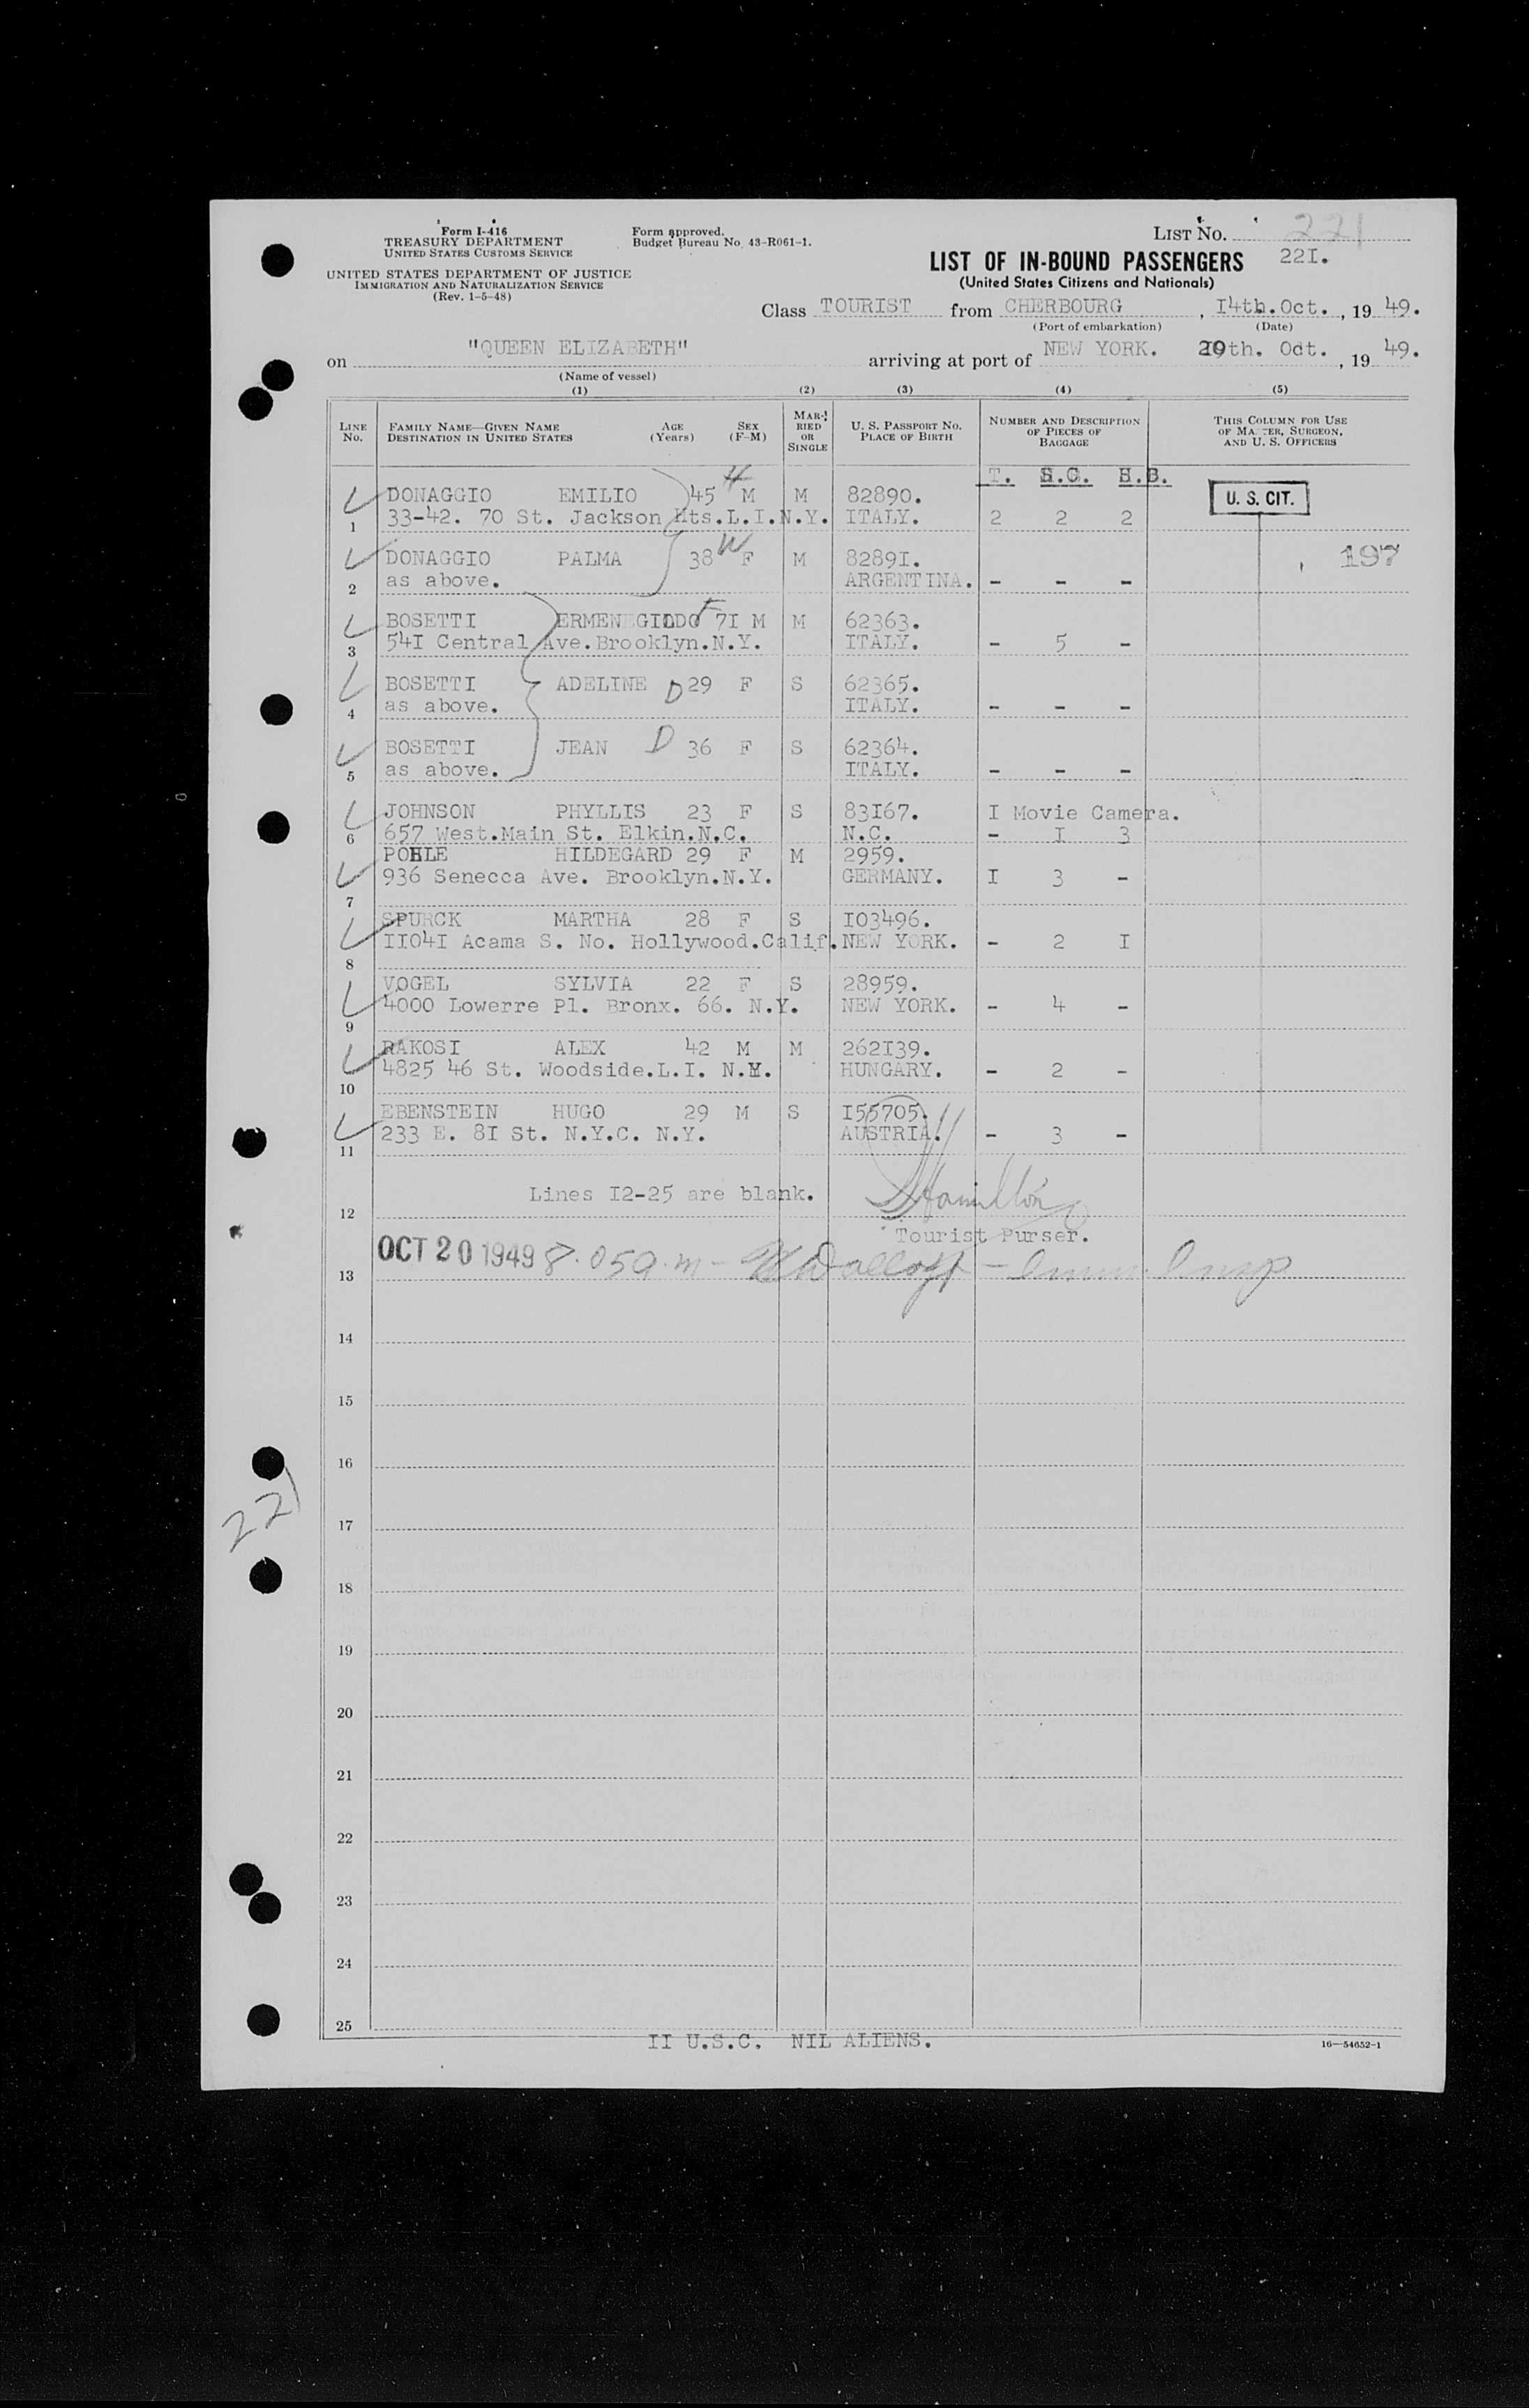 Form I-416
TREASURY DEPARTMENT
UNITED STATES CUSTOMS SERVICE
UNITED STATES DEPARTMENT OF JUSTICE
IMMIGRATION AND NATURALIZATION SERVICE
(Rev. 1-5-48)
Form approved.
Budget Bureau No. 43-R061-1.
LIST NO. 221
221.
LIST OF IN-BOUND PASSENGERS
(United States Citizens and Nationals)
Class TOURIST from CHERBOURG, 14th.Oct., 19 49.
(Port of embarkation) (Date)
on "QUEEN ELIZABETH" arriving at port of NEW YORK. 20th. Oct., 19 49.
(Name of vessel)
(1) (2) (3) (4) (5)
LINE No. FAMILY NAME—GIVEN NAME DESTINATION IN UNITED STATES AGE (Years) SEX (F-M) MARRIED OR SINGLE U. S. PASSPORT NO. PLACE OF BIRTH NUMBER AND DESCRIPTION OF PIECES OF BAGGAGE THIS COLUMN FOR USE OF MASTER, SURGEON, AND U. S. OFFICERS
T. S.C. H.B.
DONAGGIO EMILIO 45 H M M 82890. U. S. CIT.
1 33-42. 70 St. Jackson Hts.L.I.N.Y. ITALY. 2 2 2
DONAGGIO PALMA 38 W F M 82891. 197
2 as above. ARGENTINA. - - -
BOSETTI ERMENEGILDO F 71 M M 62363.
3 541 Central Ave.Brooklyn.N.Y. ITALY. - 5 -
BOSETTI ADELINE D 29 F S 62365.
4 as above. ITALY. - - -
BOSETTI JEAN D 36 F S 62364.
5 as above. ITALY. - - -
JOHNSON PHYLLIS 23 F S 83167. I Movie Camera.
6 657 West.Main St. Elkin.N.C. N.C. - I 3
POHLE HILDEGARD 29 F M 2959.
7 936 Senecca Ave. Brooklyn.N.Y. GERMANY. I 3 -
SPURCK MARTHA 28 F S 103496.
8 11041 Acama S. No. Hollywood.Calif. NEW YORK. - 2 I
VOGEL SYLVIA 22 F S 28959.
9 4000 Lowerre Pl. Bronx. 66. N.Y. NEW YORK. - 4 -
RAKOSI ALEX 42 M M 262139.
10 4825 46 St. Woodside.L.I. N.Y. HUNGARY. - 2 -
EBENSTEIN HUGO 29 M S 155705.
11 233 E. 81 St. N.Y.C. N.Y. AUSTRIA. - 3 -
12 Lines 12-25 are blank. Hamilton
Tourist Purser.
13 OCT 20 1949 8.05 a.m - Imm. Insp
14
15
16
17
221
18
19
20
21
22
23
24
25
II U.S.C. NIL ALIENS.
16—54652-1